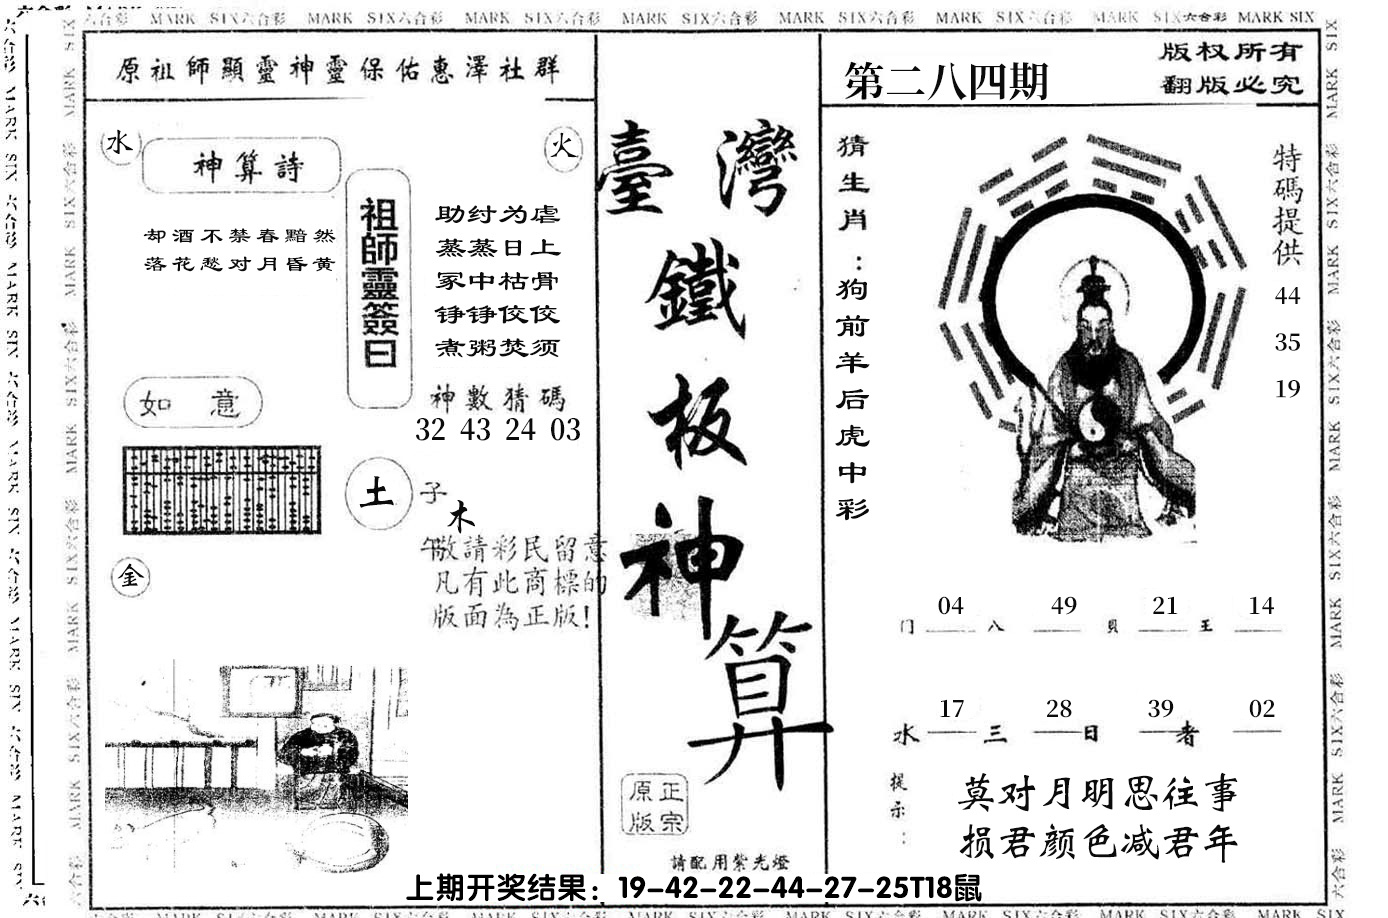 MARK SIX六合彩 MARK SIX六合彩 MARK SIX六合彩 MARK SIX六合彩 MARK SIX六合彩 MARK SIX六合彩 MARK SIX六合彩 MARK SIX
原祖師顯靈神靈保佑惠澤社群
水
神算詩
火
却酒不禁春黯然
落花愁对月昏黄
祖師靈簽曰
助纣为虐
蒸蒸日上
冢中枯骨
铮铮佼佼
煮粥焚须
如意
神數猜碼
32 43 24 03
土
子
木
午
金
敬請彩民留意
凡有此商標的
版面為正版!
臺灣
鐵
板
神
算
正宗
原版
請配用紫光燈
第二八四期
版权所有
翻版必究
猜生肖:狗前羊后虎中彩
特碼提供
44
35
19
04 49 21 14
门 八 貝 王
17 28 39 02
水 三 日 者
提示:
莫对月明思往事
损君颜色减君年
上期开奖结果：19-42-22-44-27-25T18鼠